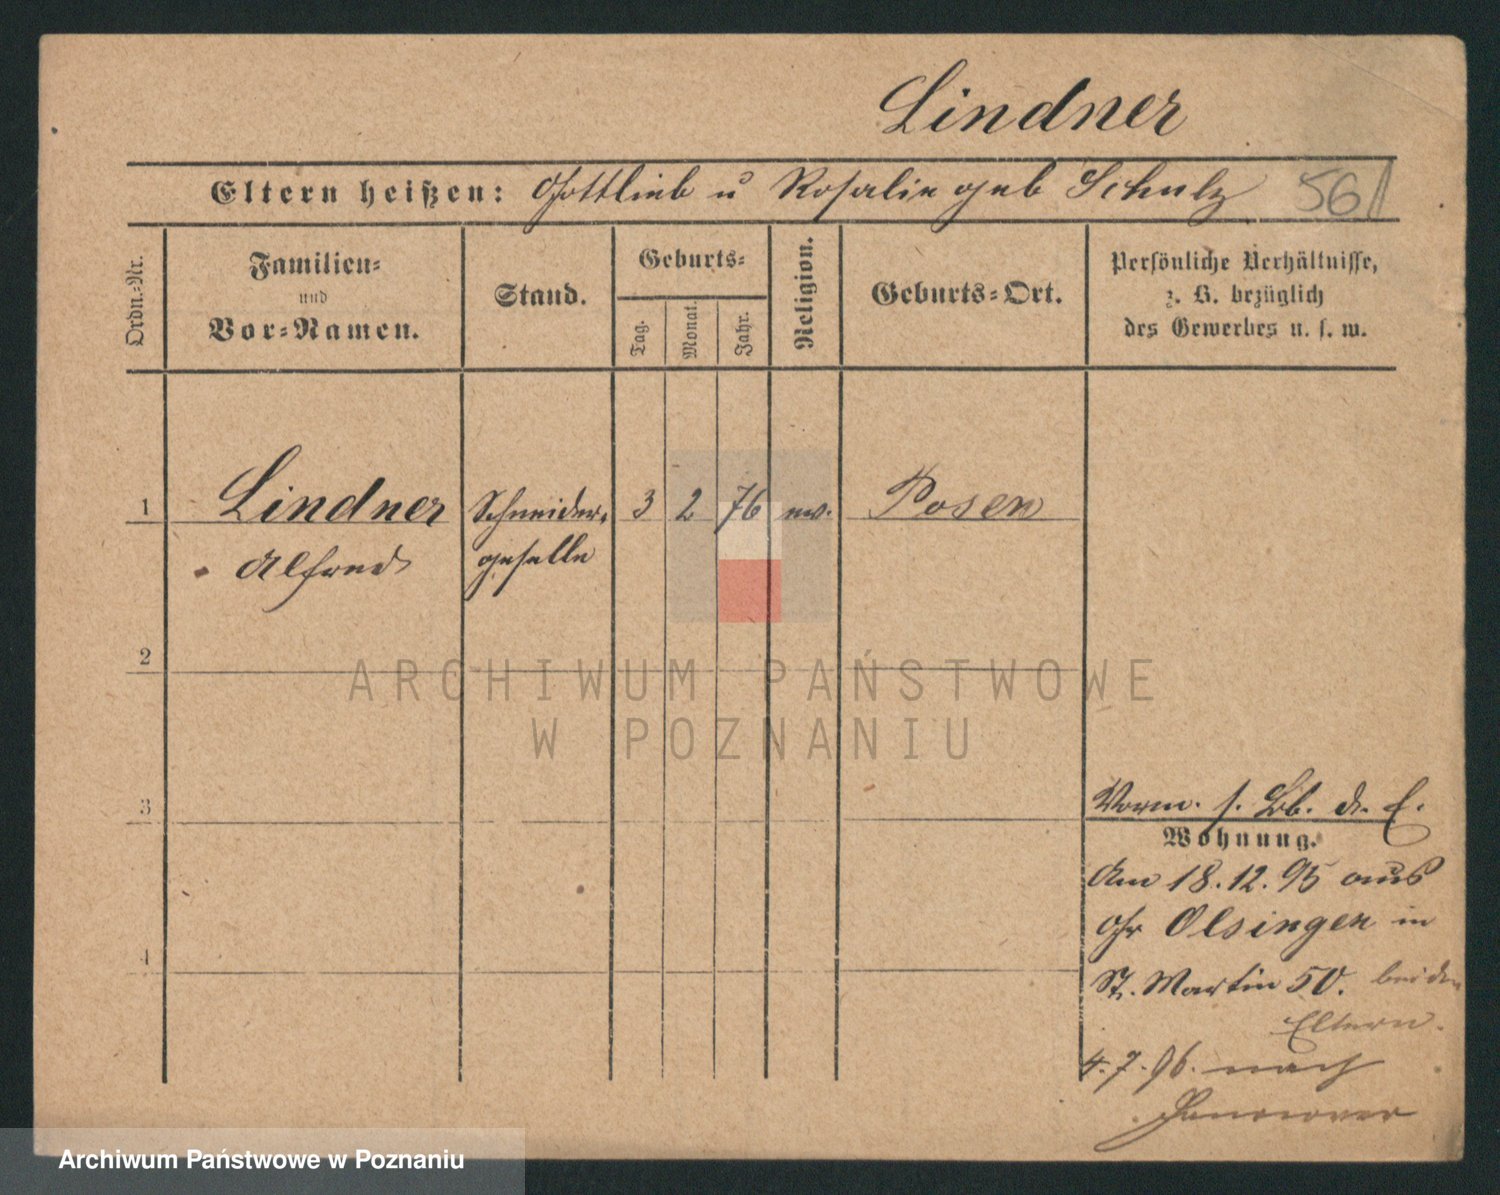 Lindner
Eltern heißen: Gottlieb u Rosalie geb Schulz 56
Ordn.-Nr.
Familien-
und
Vor-Namen.
Stand.
Geburts-
Tag.
Monat.
Jahr.
Religion.
Geburts-Ort.
Persönliche Verhältnisse,
z. B. bezüglich
des Gewerbes u. s. w.
1 Lindner Schneider- 3 2 76 ev. Posen
Alfred geselle
2
3
4
ARCHIWUM PAŃSTWOWE
W POZNANIU
Vorm. s. Bb. d. E.
Wohnung.
Am 18.12.95 aus
Gr Olsingen in
St. Martin 50. bei den
Eltern.
4.7.96. nach
Hannover
Archiwum Państwowe w Poznaniu